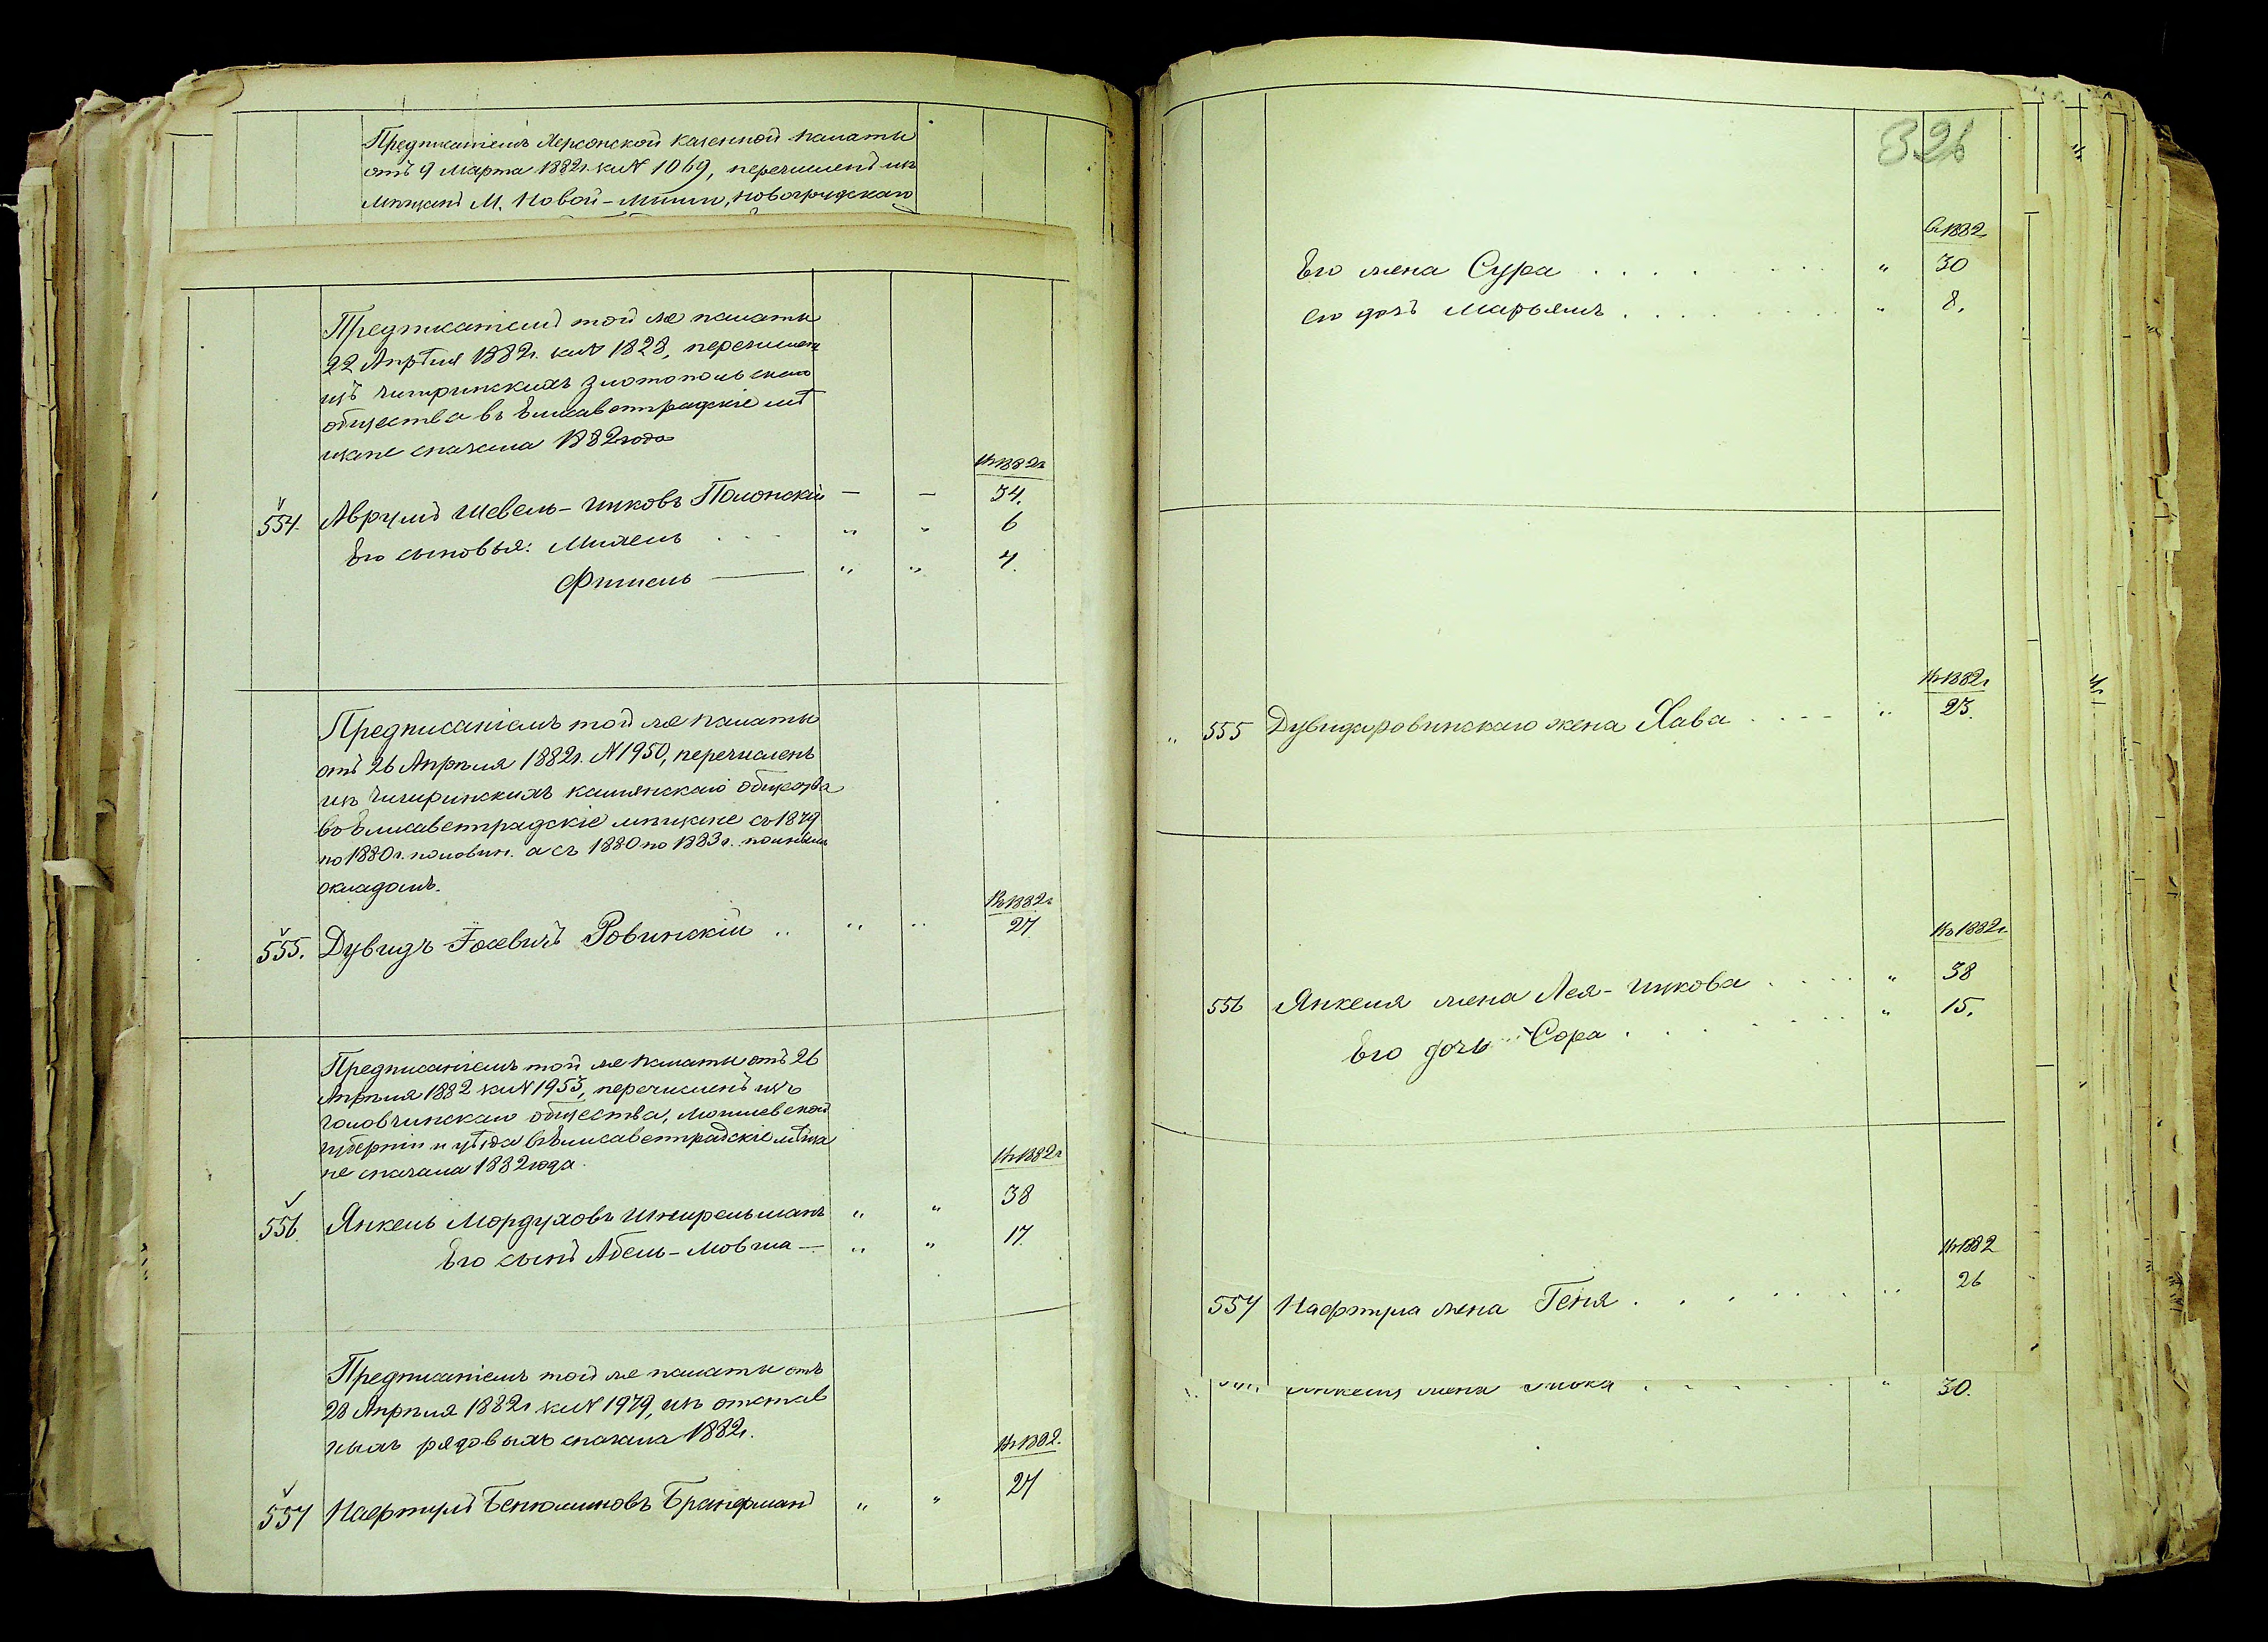 Предписаніемъ Херсонской Казенной палаты
отъ 9 Марта 1882г. за № 1069, перечисленъ изъ
мѣщанъ М. Новой-Мыши, Новогрудскаго
Предписаніемъ той же палаты
22 Апрѣля 1882г. за № 1828, перечислен
изъ Чигиринскихъ Златопольскаго
общества въ Елисаветградскіе мѣ
щане сначала 1882 года
Въ 1882г.
554. Аврумъ Шевель-Ицковъ Полонскій — — 34.
Его сыновья: Михель . . . " " 6
Фишель — " " 4.
Предписаніемъ той же палаты
отъ 26 Апрѣля 1882г. № 1950, перечисленъ
изъ Чигиринскихъ Камянскаго общества
въ Елисаветградскіе мѣщане съ 1879
по 1880г. половин. а съ 1880 по 1883г. полнымъ
окладомъ.
Въ 1882г.
555. Дувидъ Іосевичъ Ровинскій " " " 27
Предписаніемъ той же палаты отъ 26
Апрѣля 1882 за № 1953, перечисленъ изъ
Головчинскаго общества, Могилевской
губерніи и уѣзда въ Елисаветградскіе мѣща
не сначала 1882 года.
Въ 1882г
556. Янкель Мордуховъ Шнирельманъ " " 38
Его сынъ Абель-Мовша — " " 17.
Предписаніемъ той же палаты отъ
28 Апрѣля 1882г за № 1979, изъ отстав
ныхъ рядовыхъ сначала 1882г.
Въ 1882.
557 Нафтулъ Бенюминовъ Бранфманъ " " 27
326
Въ 1882
Его жена Сура . . . . . . . " 30
его дочь Марьямъ . . . . . . . " 8.
Въ 1882г
" 555 Дувида Ровинскаго жена Хава . . . . " 23.
Въ 1882г.
556 Янкеля жена Лея-Ицкова . . . . " 38
Его дочь Сора . . . . . . " 15.
Въ 1882
557 Нафтула жена Геня . . . . . . " 26
жена . . . . . . " 30.